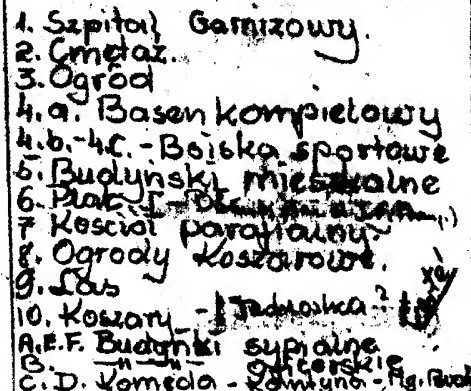 1. Szpital Garnizowy.
2. Cmetaż.
3. Ogród
4.a. Basen kompielowy
4.b.-4.C. - Boiska sportowe
5. Budyński mieszkalne
6. Plac I -
7 Kosciol parafialny.
8. Ogrody Koszarowe.
9. Las
10. Koszary - Jednostka ?
A.E.F. Budynki sypialne
B. " " oficerskie
C. D. Komęda -